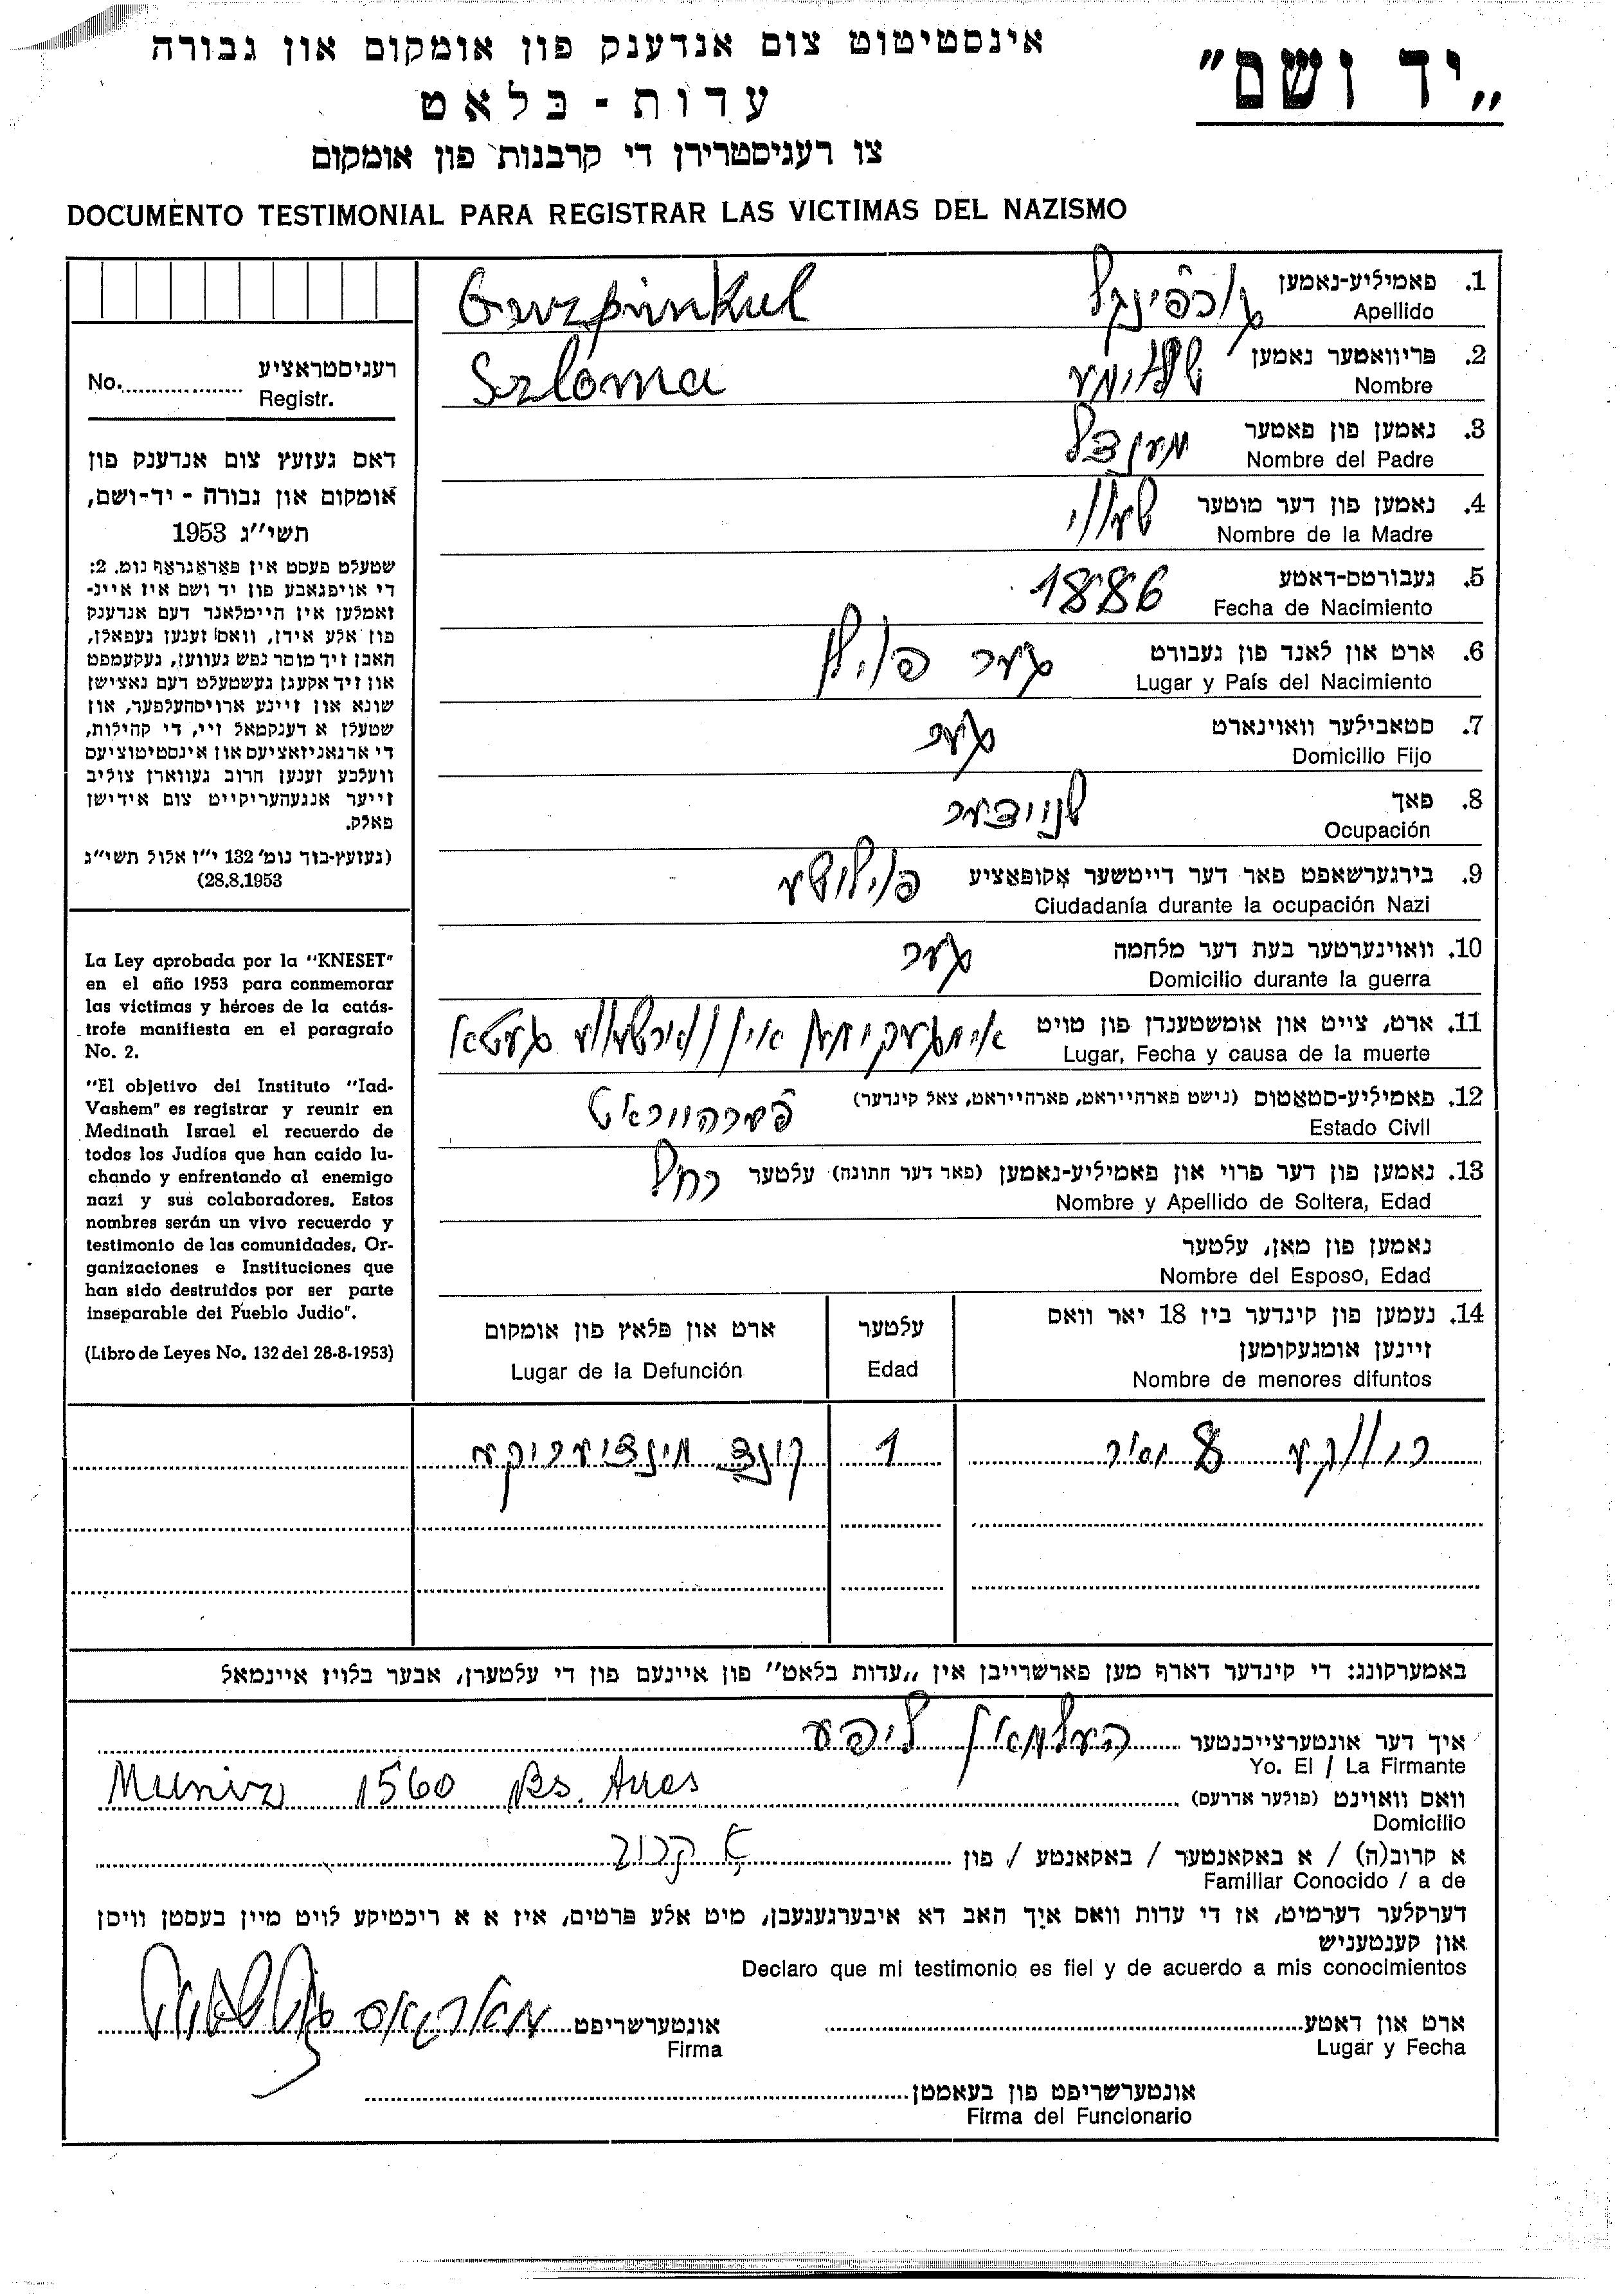 אינסטיטוט צום אנדענק פון אומקום און גבורה
„יד ושם”
עדות - בלאט
צו רעגיסטרירן די קרבנות פון אומקום
DOCUMENTO TESTIMONIAL PARA REGISTRAR LAS VICTIMAS DEL NAZISMO
No. רעגיסטראציע
Registr.
דאס געזעץ צום אנדענק פון
אומקום און גבורה - יד-ושם,
תשי"ג 1953
שטעלט פעסט אין פאראגראף נומ. 2:
די אויפגאבע פון יד ושם איז איינ-
זאמלען אין היימלאנד דעם אנדענק
פון אלע אידן, וואס זענען געפאלן,
האבן זיך מוסר נפש געווען, געקעמפט
און זיך אקעגן געשטעלט דעם נאצישן
שונא און זיינע ארויסהעלפער, און
שטעלן א דענקמאל זיי, די קהילות,
די ארגאניזאציעס און אינסטיטוציעס
וועלכע זענען חרוב געווארן צוליב
זייער אנגעהעריקייט צום אידישן
פאלק.
(געזעץ-בוך נומ' 132 י"ז אלול תשי"ג
28.8.1953)
La Ley aprobada por la "KNESET"
en el año 1953 para conmemorar
las víctimas y héroes de la catás-
trofe manifiesta en el paragrafo
No. 2.
"El objetivo del Instituto "Iad-
Vashem" es registrar y reunir en
Medinath Israel el recuerdo de
todos los Judíos que han caído lu-
chando y enfrentando al enemigo
nazi y sus colaboradores. Estos
nombres serán un vivo recuerdo y
testimonio de las comunidades, Or-
ganizaciones e Instituciones que
han sido destruidos por ser parte
inseparable del Pueblo Judio".
(Libro de Leyes No. 132 del 28-8-1953)
1. פאמיליע-נאמען
Apellido
2. פריוואטער נאמען שלוימע Szloma
Nombre
3. נאמען פון פאטער מענדל
Nombre del Padre
4. נאמען פון דער מוטער
Nombre de la Madre
5. געבורטס-דאטע 1886
Fecha de Nacimiento
6. ארט און לאנד פון געבורט גער פוילן
Lugar y País del Nacimiento
7. סטאבילער וואוינארט גער
Domicilio Fijo
8. פאך שניידער
Ocupación
9. בירגערשאפט פאר דער דייטשער אקופאציע פוילישע
Ciudadanía durante la ocupación Nazi
10. וואוינערטער בעת דער מלחמה גער
Domicilio durante la guerra
11. ארט, צייט און אומשטענדן פון טויט אומגעקומען אין ווארשעווע געטא
Lugar, Fecha y causa de la muerte
12. פאמיליע-סטאטוס (נישט פארהייראט, פארהייראט, צאל קינדער)
Estado Civil
13. נאמען פון דער פרוי און פאמיליע-נאמען (פאר דער חתונה) עלטער רחל
Nombre y Apellido de Soltera, Edad
נאמען פון מאן, עלטער
Nombre del Esposo, Edad
14. נעמען פון קינדער ביז 18 יאר וואס
זיינען אומגעקומען
Nombre de menores difuntos
עלטער
Edad
ארט און פלאץ פון אומקום
Lugar de la Defunción
8 יאר 1
באמערקונג: די קינדער דארף מען פארשרייבן אין „עדות בלאט" פון איינעם פון די עלטערן, אבער בלויז איינמאל
איך דער אונטערצייכנטער העלמאן ליפע
Yo. El / La Firmante
וואס וואוינט (פולער אדרעס) Muniz 1560 Bs. Aires
Domicilio
א קרוב(ה) / א באקאנטער / באקאנטע / פון א קרוב
Familiar Conocido / a de
דערקלער דערמיט, אז די עדות וואס איך האב דא איבערגעגעבן, מיט אלע פרטים, איז א א ריכטיקע לויט מיין בעסטן וויסן
און קענטעניש
Declaro que mi testimonio es fiel y de acuerdo a mis conocimientos
ארט און דאטע
Lugar y Fecha
אונטערשריפט
Firma
אונטערשריפט פון באאמטן
Firma del Funcionario